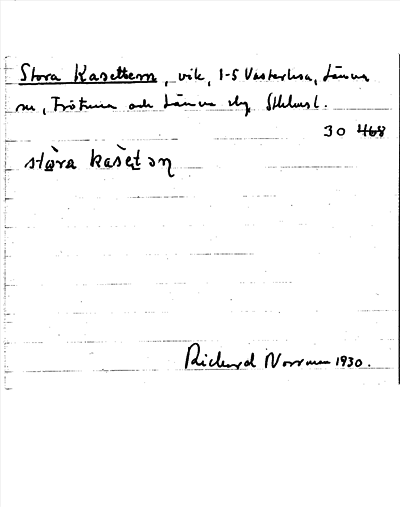 Stora Kasetten, vik, 1-5 Västerlisa, Länna
sn, Frötuna och Länna slg, Sthlmsl.
30 468
stòra kasèt ən
Richard Norrman 1930.